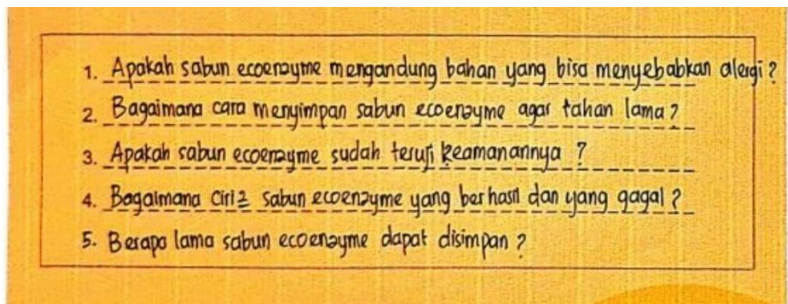 1. Apakah sabun ecoenzyme mengandung bahan yang bisa menyebabkan alergi?
2. Bagaimana cara menyimpan sabun ecoenzyme agar tahan lama?
3. Apakah sabun ecoenzyme sudah teruji keamanannya ?
4. Bagaimana ciri2 sabun ecoenzyme yang berhasil dan yang gagal ?
5. Berapa lama sabun ecoenzyme dapat disimpan ?